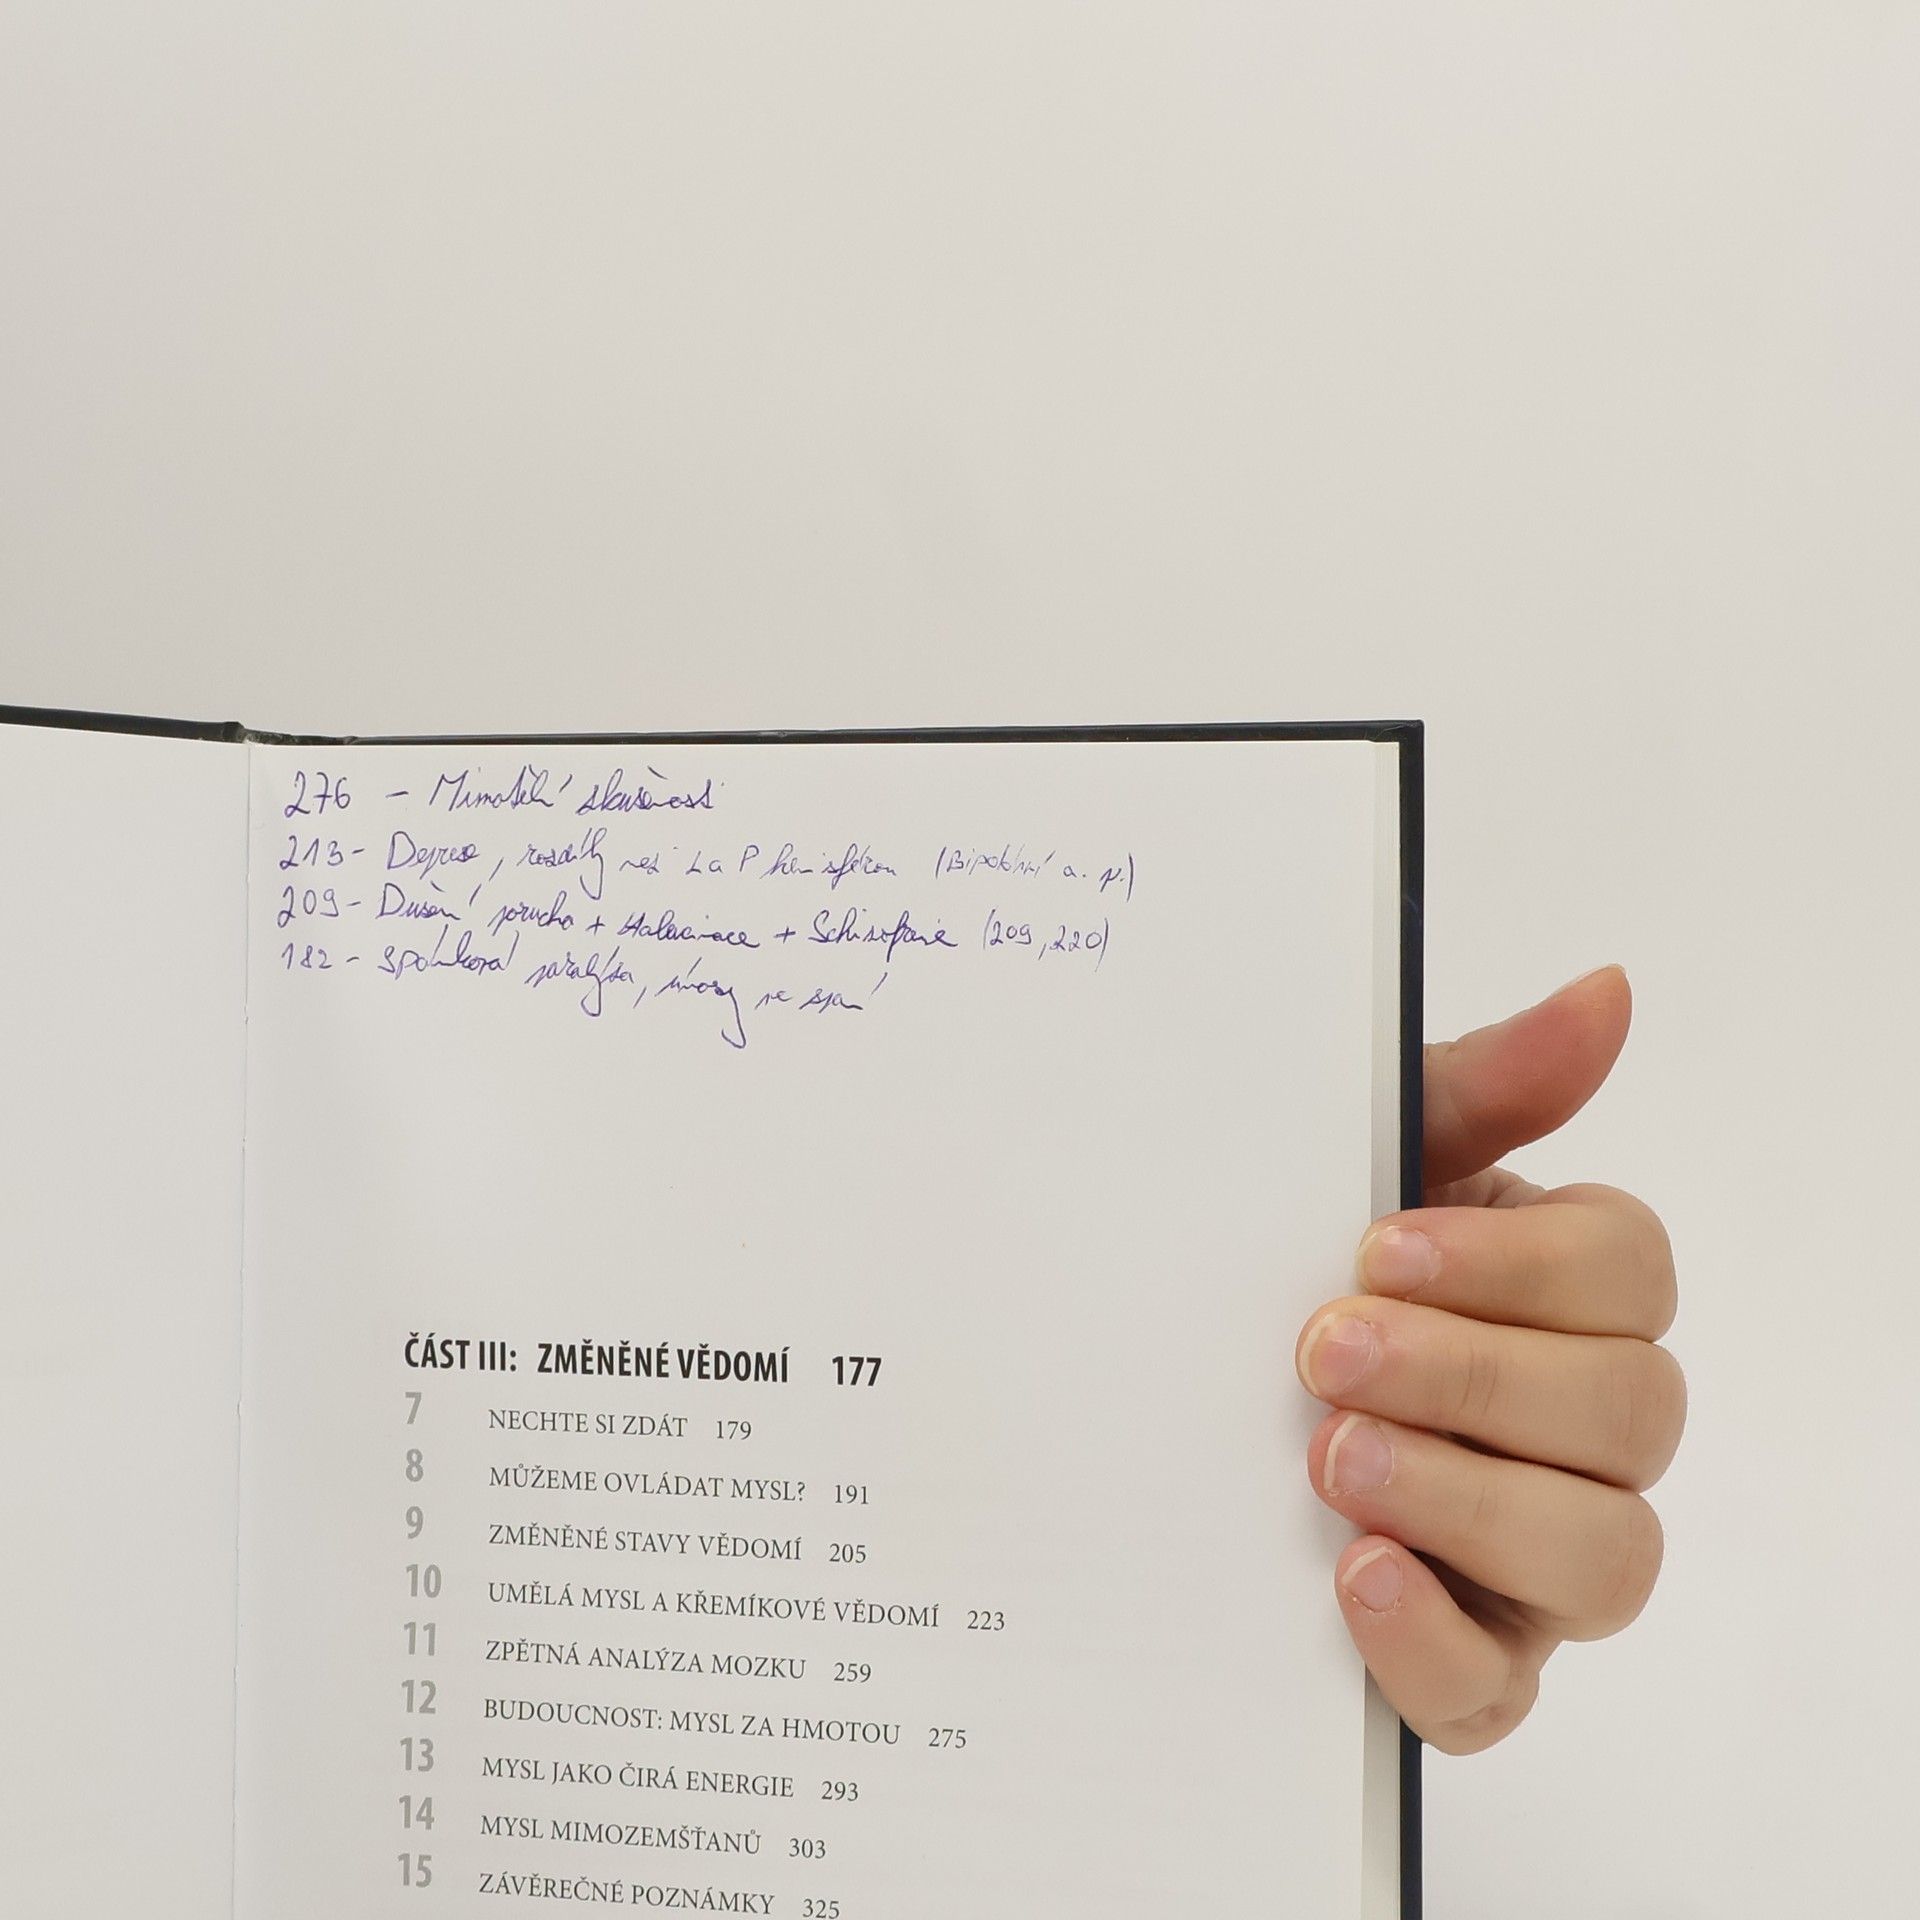 276 - Mimotělní skušenost
213 - Deprese, rozdíly mezi L a P hemisférou (Bipolární a. p.)
209 - Dušení porucha + Halucinace + Schizofrenie (209, 220)
182 - Spánková paralýza, únosy ve spaní
ČÁST III: ZMĚNĚNÉ VĚDOMÍ 177
7 NECHTE SI ZDÁT 179
8 MŮŽEME OVLÁDAT MYSL? 191
9 ZMĚNĚNÉ STAVY VĚDOMÍ 205
10 UMĚLÁ MYSL A KŘEMÍKOVÉ VĚDOMÍ 223
11 ZPĚTNÁ ANALÝZA MOZKU 259
12 BUDOUCNOST: MYSL ZA HMOTOU 275
13 MYSL JAKO ČIRÁ ENERGIE 293
14 MYSL MIMOZEMŠŤANŮ 303
15 ZÁVĚREČNÉ POZNÁMKY 325